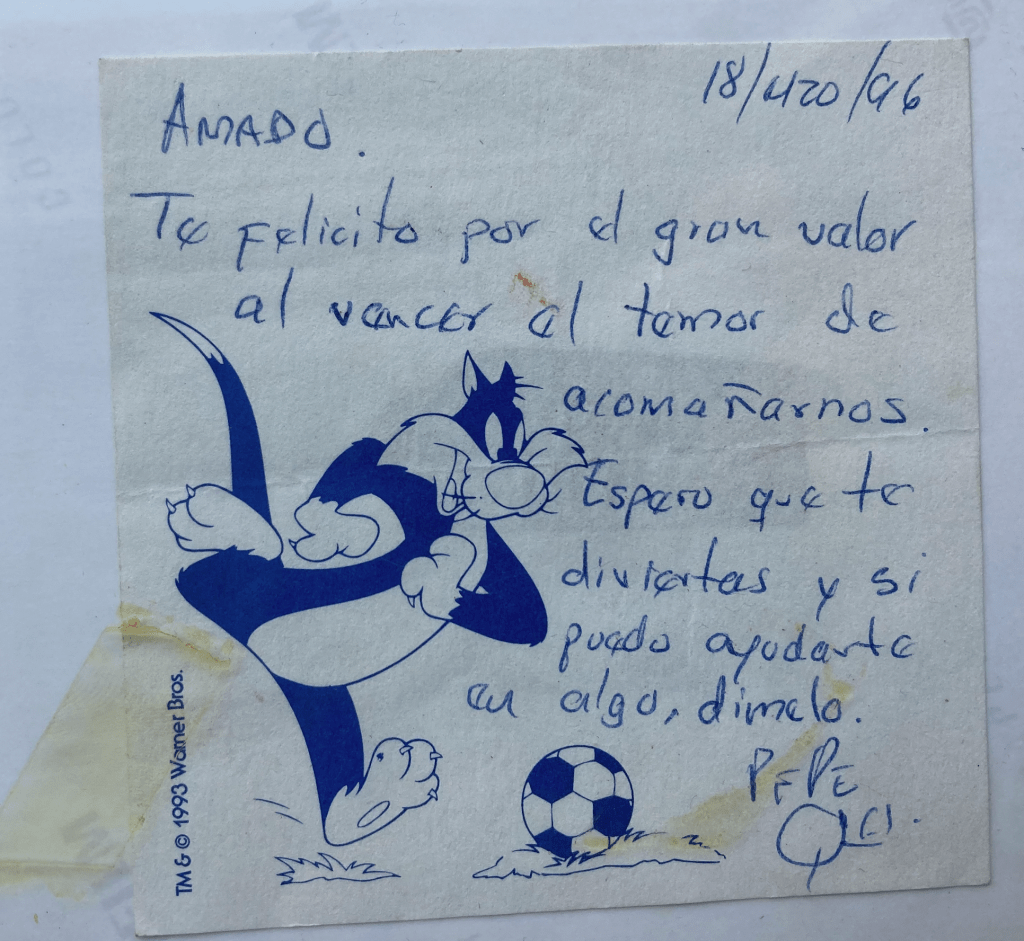 18/MZO/96
AMADO.
Te felicito por el gran valor
al vencer el temor de
acomañarnos.
Espero que te
diviertas y si
puedo ayudarte
en algo, dimelo.
PEPE
TM & © 1993 Warner Bros.